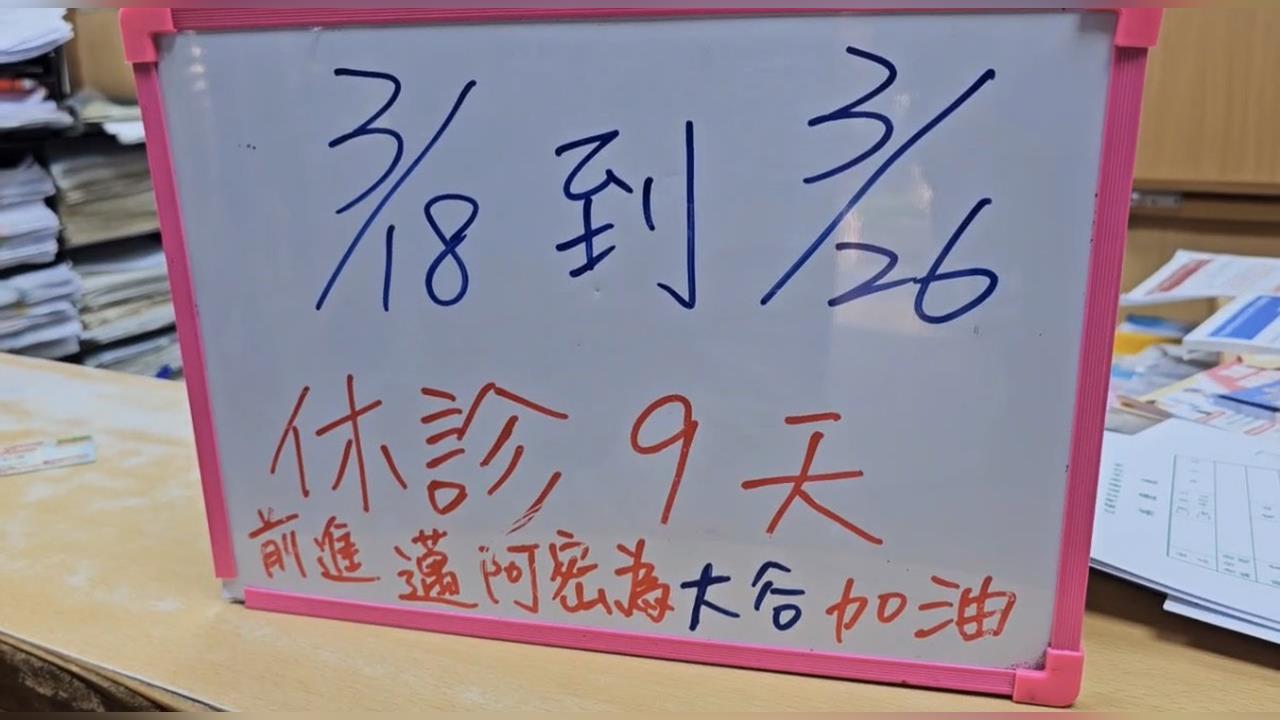 3/18 到 3/26
休診 9 天
前進 邁阿密為大谷加油